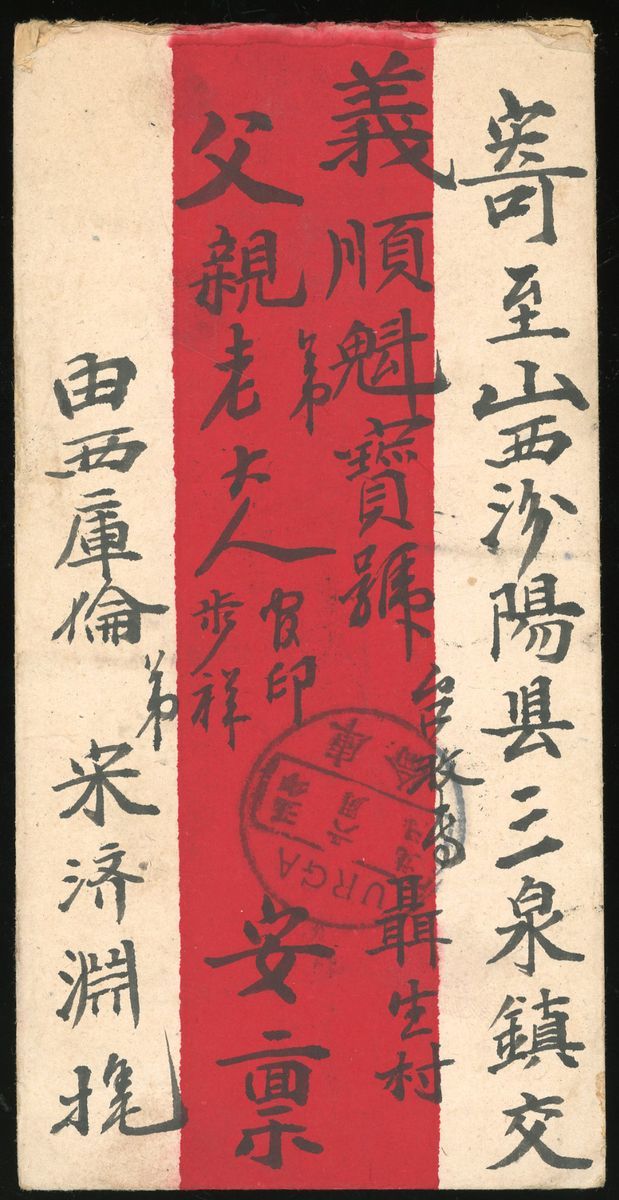 寄至山西汾陽县三泉鎮交
義順魁寶號
台收
聶生村
父親老大人
官印
步祥
安稟
由西庫倫
宋济淵
庫倫
壬子
六月
URGA